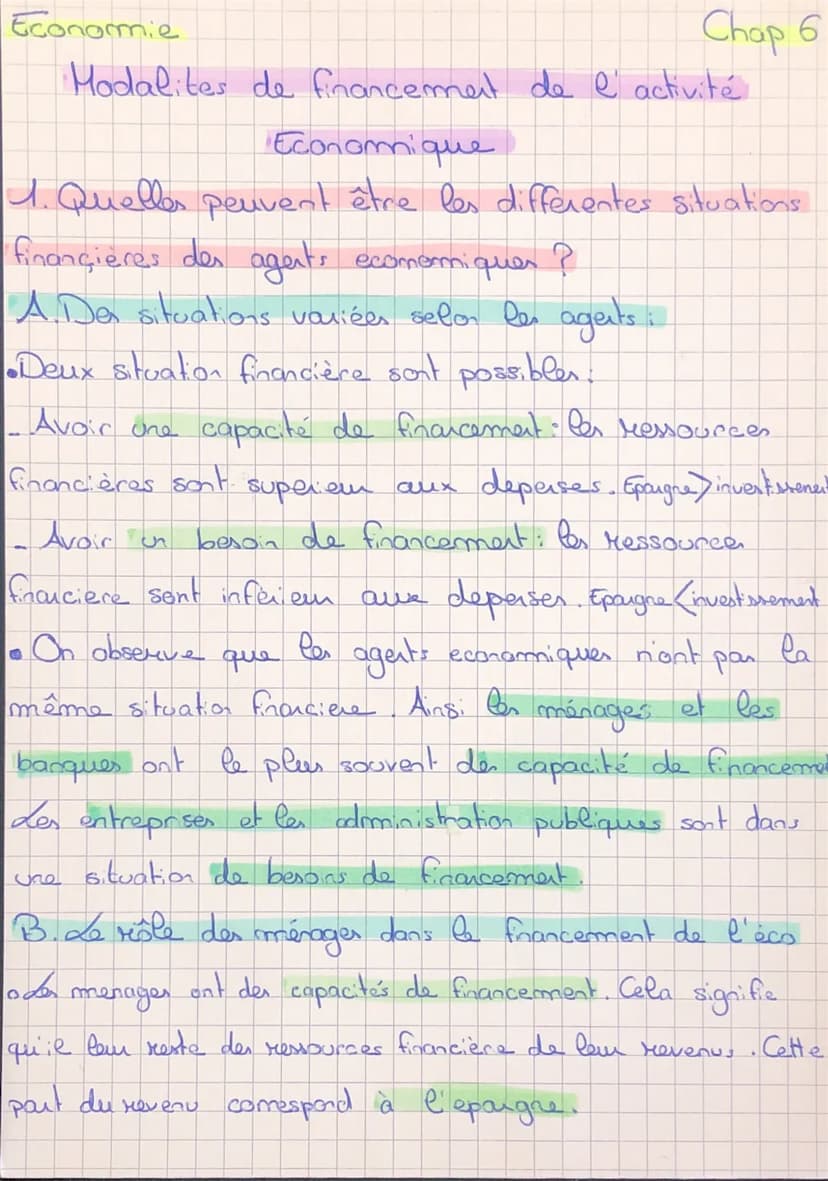 Economie Chap 6
Modalites de financement de l'activité
Economique
1. Quelles peuvent être les différentes situations
financières des agents economiques ?
A. Des situations variées selon les agents :
• Deux situation financière sont possibles :
- Avoir une capacité de financement : les ressources
financières sont superieur aux depenses. Epargne > investissement
- Avoir un besoin de financement : les ressources
financiere sont inférieur aux depenses. Epargne < investissement
• On observe que les agents economiques n'ont pas la
même situation financiere. Ainsi les ménages et les
banques ont le plus souvent des capacité de financement
Les entreprises et les administration publiques sont dans
une situation de besoins de financement.
B. Le rôle des ménages dans le financement de l'éco
• Les menages ont des capacités de financement. Cela signifie
qu'il leur reste des ressources financière de leur revenus. Cette
part du revenu correspond à l'epargne.